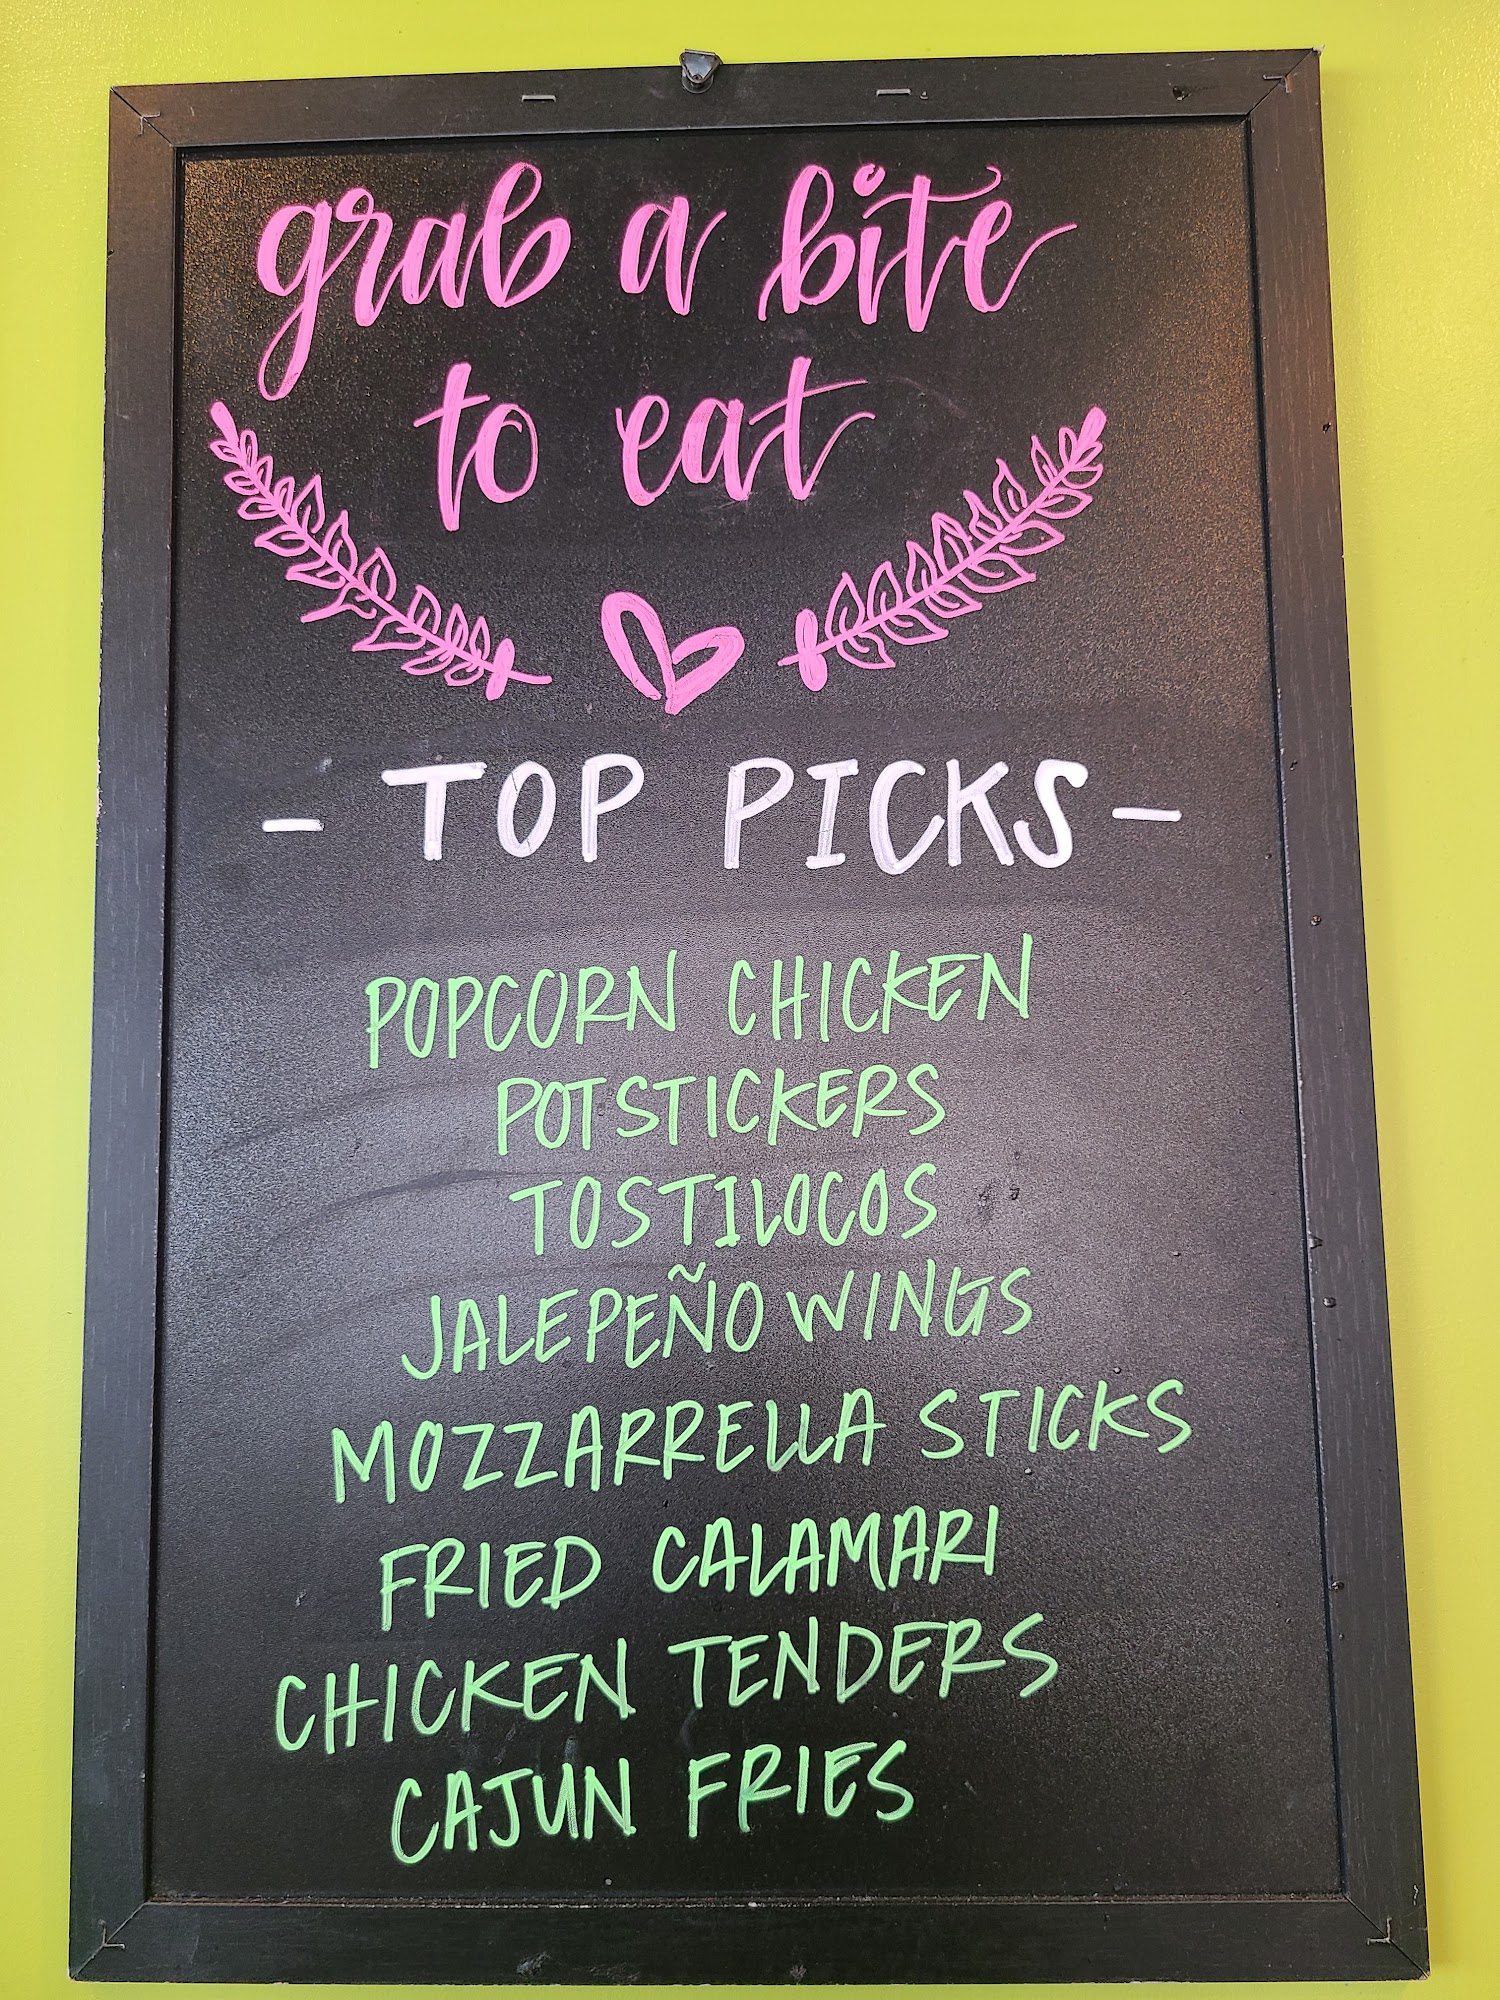 grab a bite
to eat
- TOP PICKS -
POPCORN CHICKEN
POTSTICKERS
TOSTILOCOS
JALEPEÑO WINGS
MOZZARRELLA STICKS
FRIED CALAMARI
CHICKEN TENDERS
CAJUN FRIES